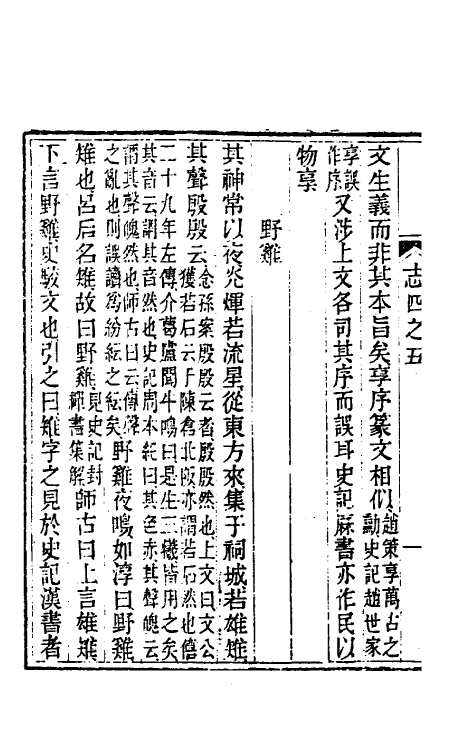 志四之五
一
文生義而非其本旨矣享序篆文相似趙策享萬古之勳史記趙世家
享誤作序又涉上文各司其序而誤耳史記厤書亦作民以
物享
野雞
其神常以夜灮煇若流星從東方來集于祠城若雄雉
其聲殷殷云念孫案殷殷云者殷殷然也上文曰文公獲若石云于陳倉北阪亦謂若石然也僖
二十九年左傳介葛盧聞牛鳴曰是生三犧皆用之矣其音云謂其音然也史記周本紀曰其色赤其聲魄云
謂其聲魄然也師古曰云傳聲之亂也則誤讀爲紛紜之紜矣野雞夜鳴如淳曰野雞
雉也呂后名雉故曰野雞見史記封禪書集解師古曰上言雄雉
下言野雞史駮文也引之曰雉字之見於史記漢書者